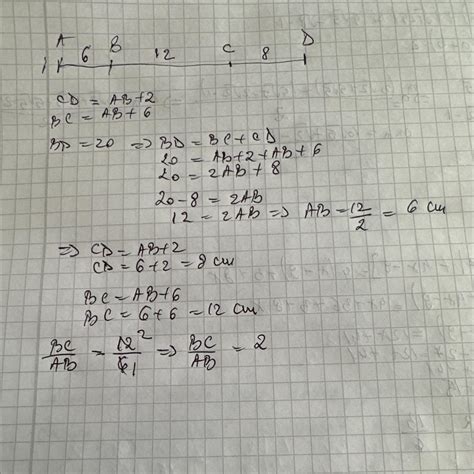 A B C D
6 12 8
CD = AB+2
BC = AB+6
BD = 20 => BD = BC + CD
20 = AB+2+AB+6
20 = 2AB+8
20-8 = 2AB
12 = 2AB => AB = 12/2 = 6 cm
=> CD = AB+2
CD = 6+2 = 8 cm
BC = AB+6
BC = 6+6 = 12 cm
BC/AB = 12²/6₁ => BC/AB = 2